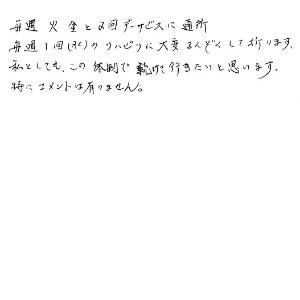 毎週 火 金と2回デーサービスに通所
毎週1回(水)のリハビリに大変 しており ます、
私としても、この体制で続けて行きたいと思います。
特にコメントは有りません。